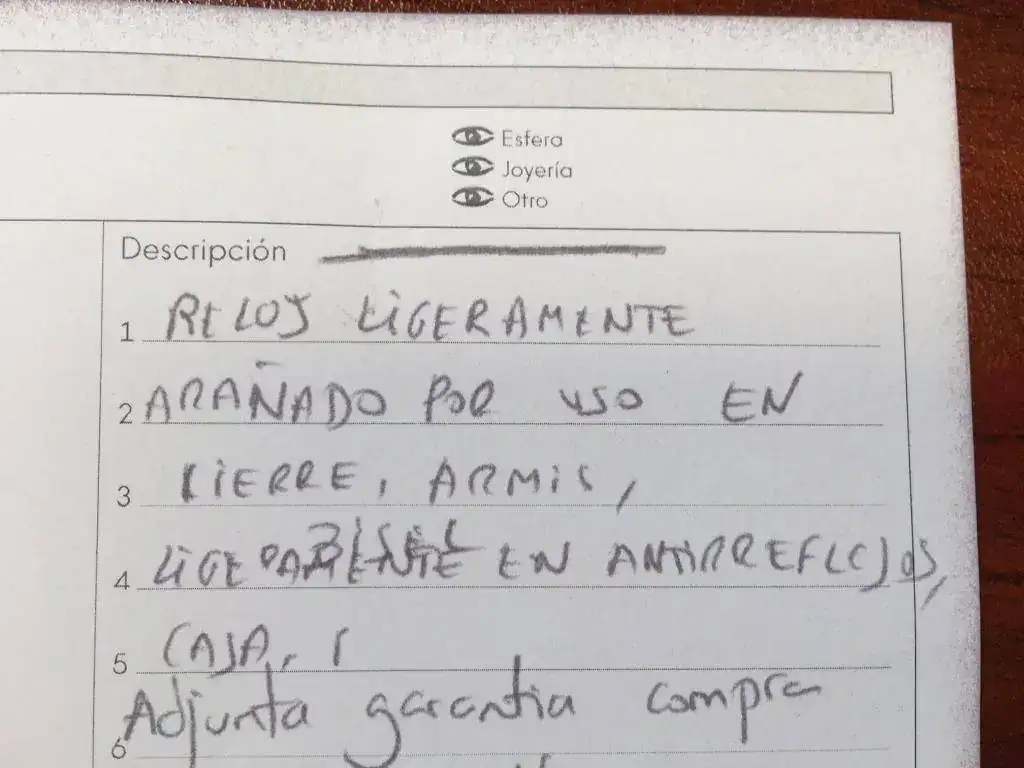 Esfera
Joyería
Otro
Descripción
1 RELOJ LIGERAMENTE
2 ARAÑADO POR USO EN
3 CIERRE, ARMIS,
BISEL
4 LIGERAMENTE EN ANTIRREFLEJOS,
5 CAJA,
Adjunta garantia compra
6